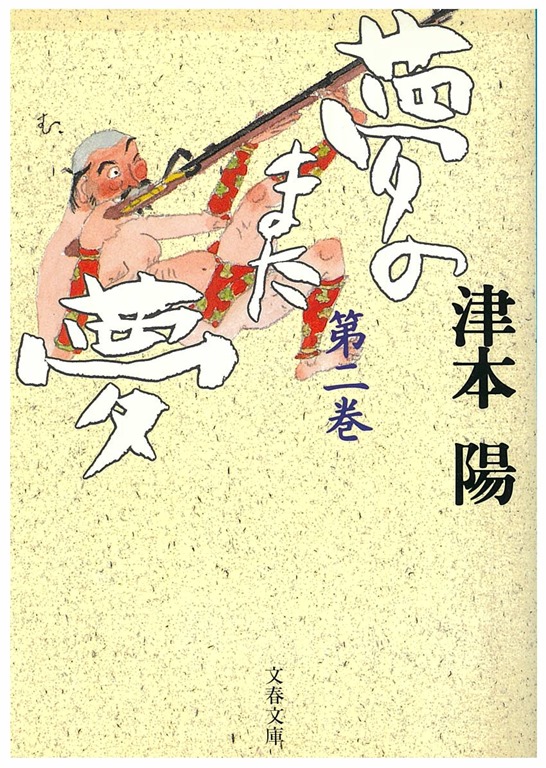 夢の
また
夢
第二巻
津本 陽
む
文春文庫